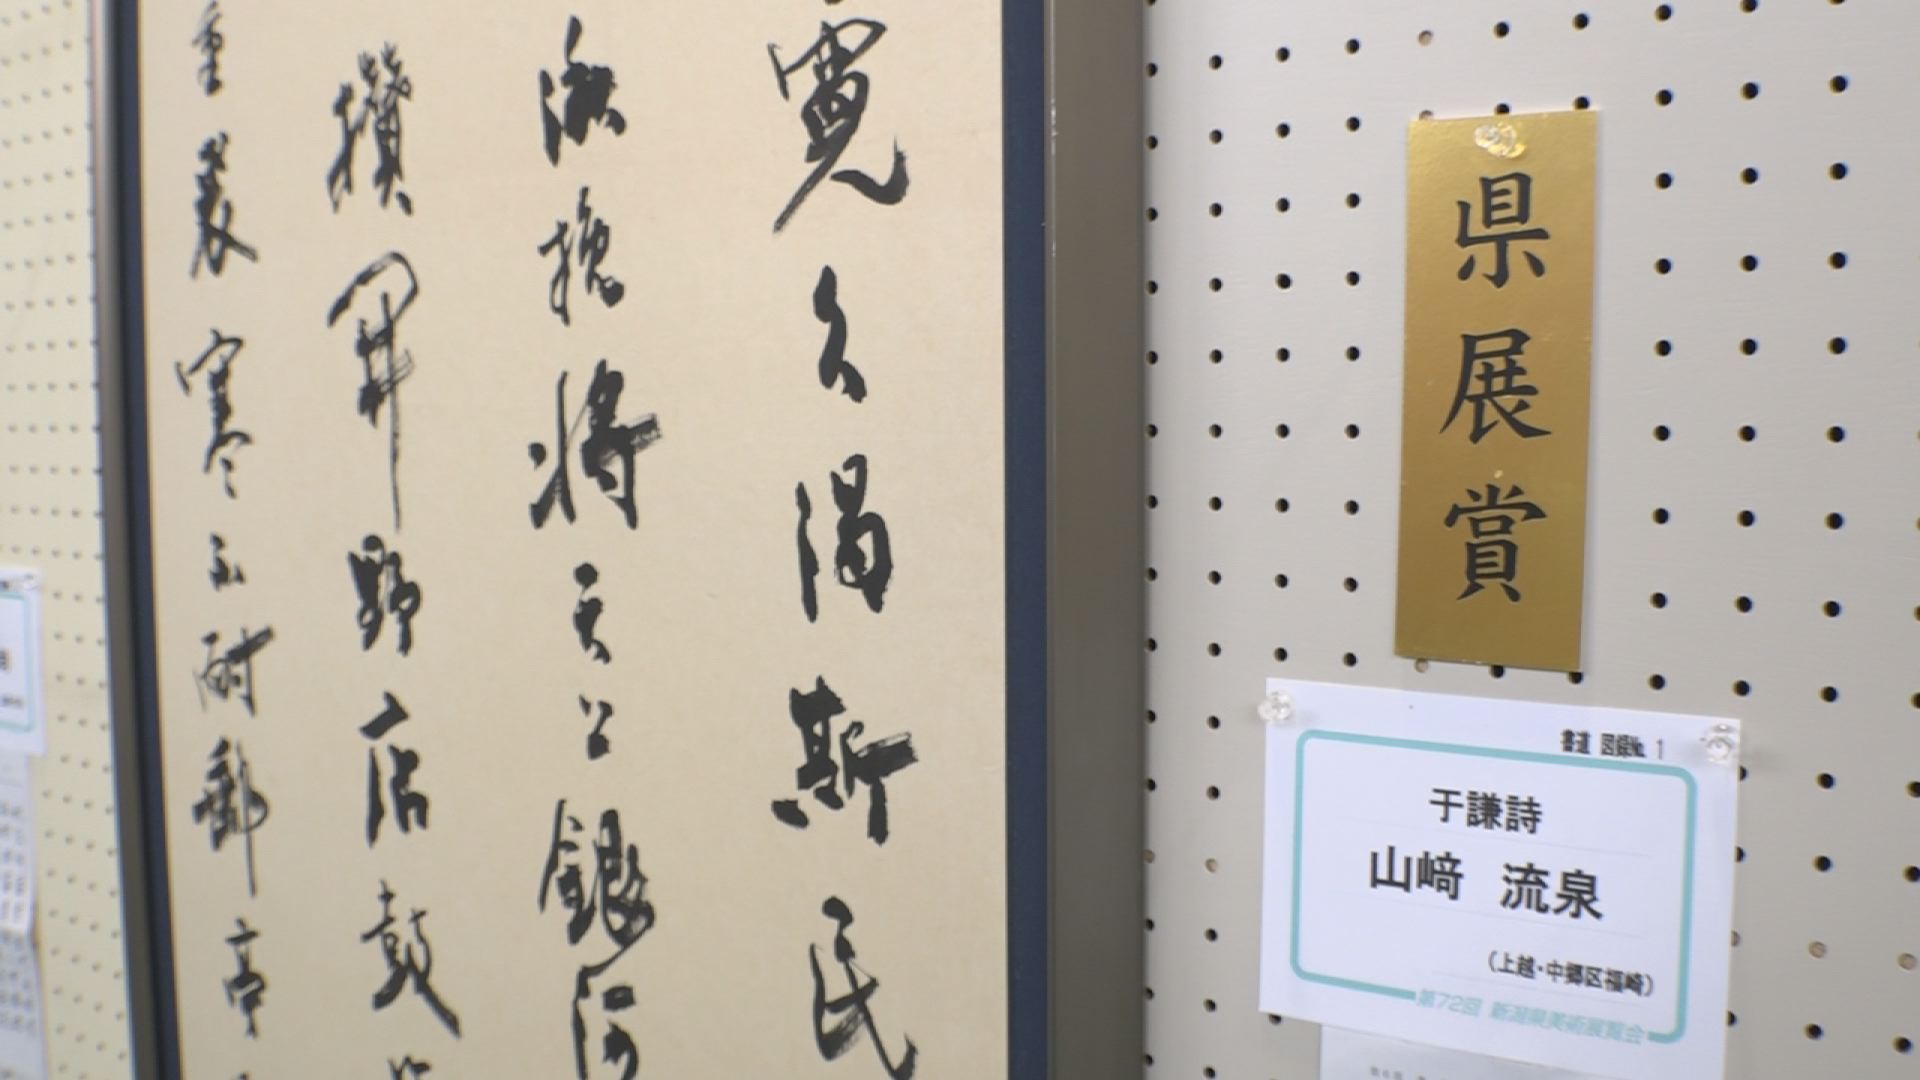 霓久渇斯民
挽将天上銀河
野店鼓
重裘寒不耐郵亭
県展賞
書道 図録№ 1
于謙詩
山﨑 流泉
(上越・中郷区福崎)
第72回 新潟県美術展覧会